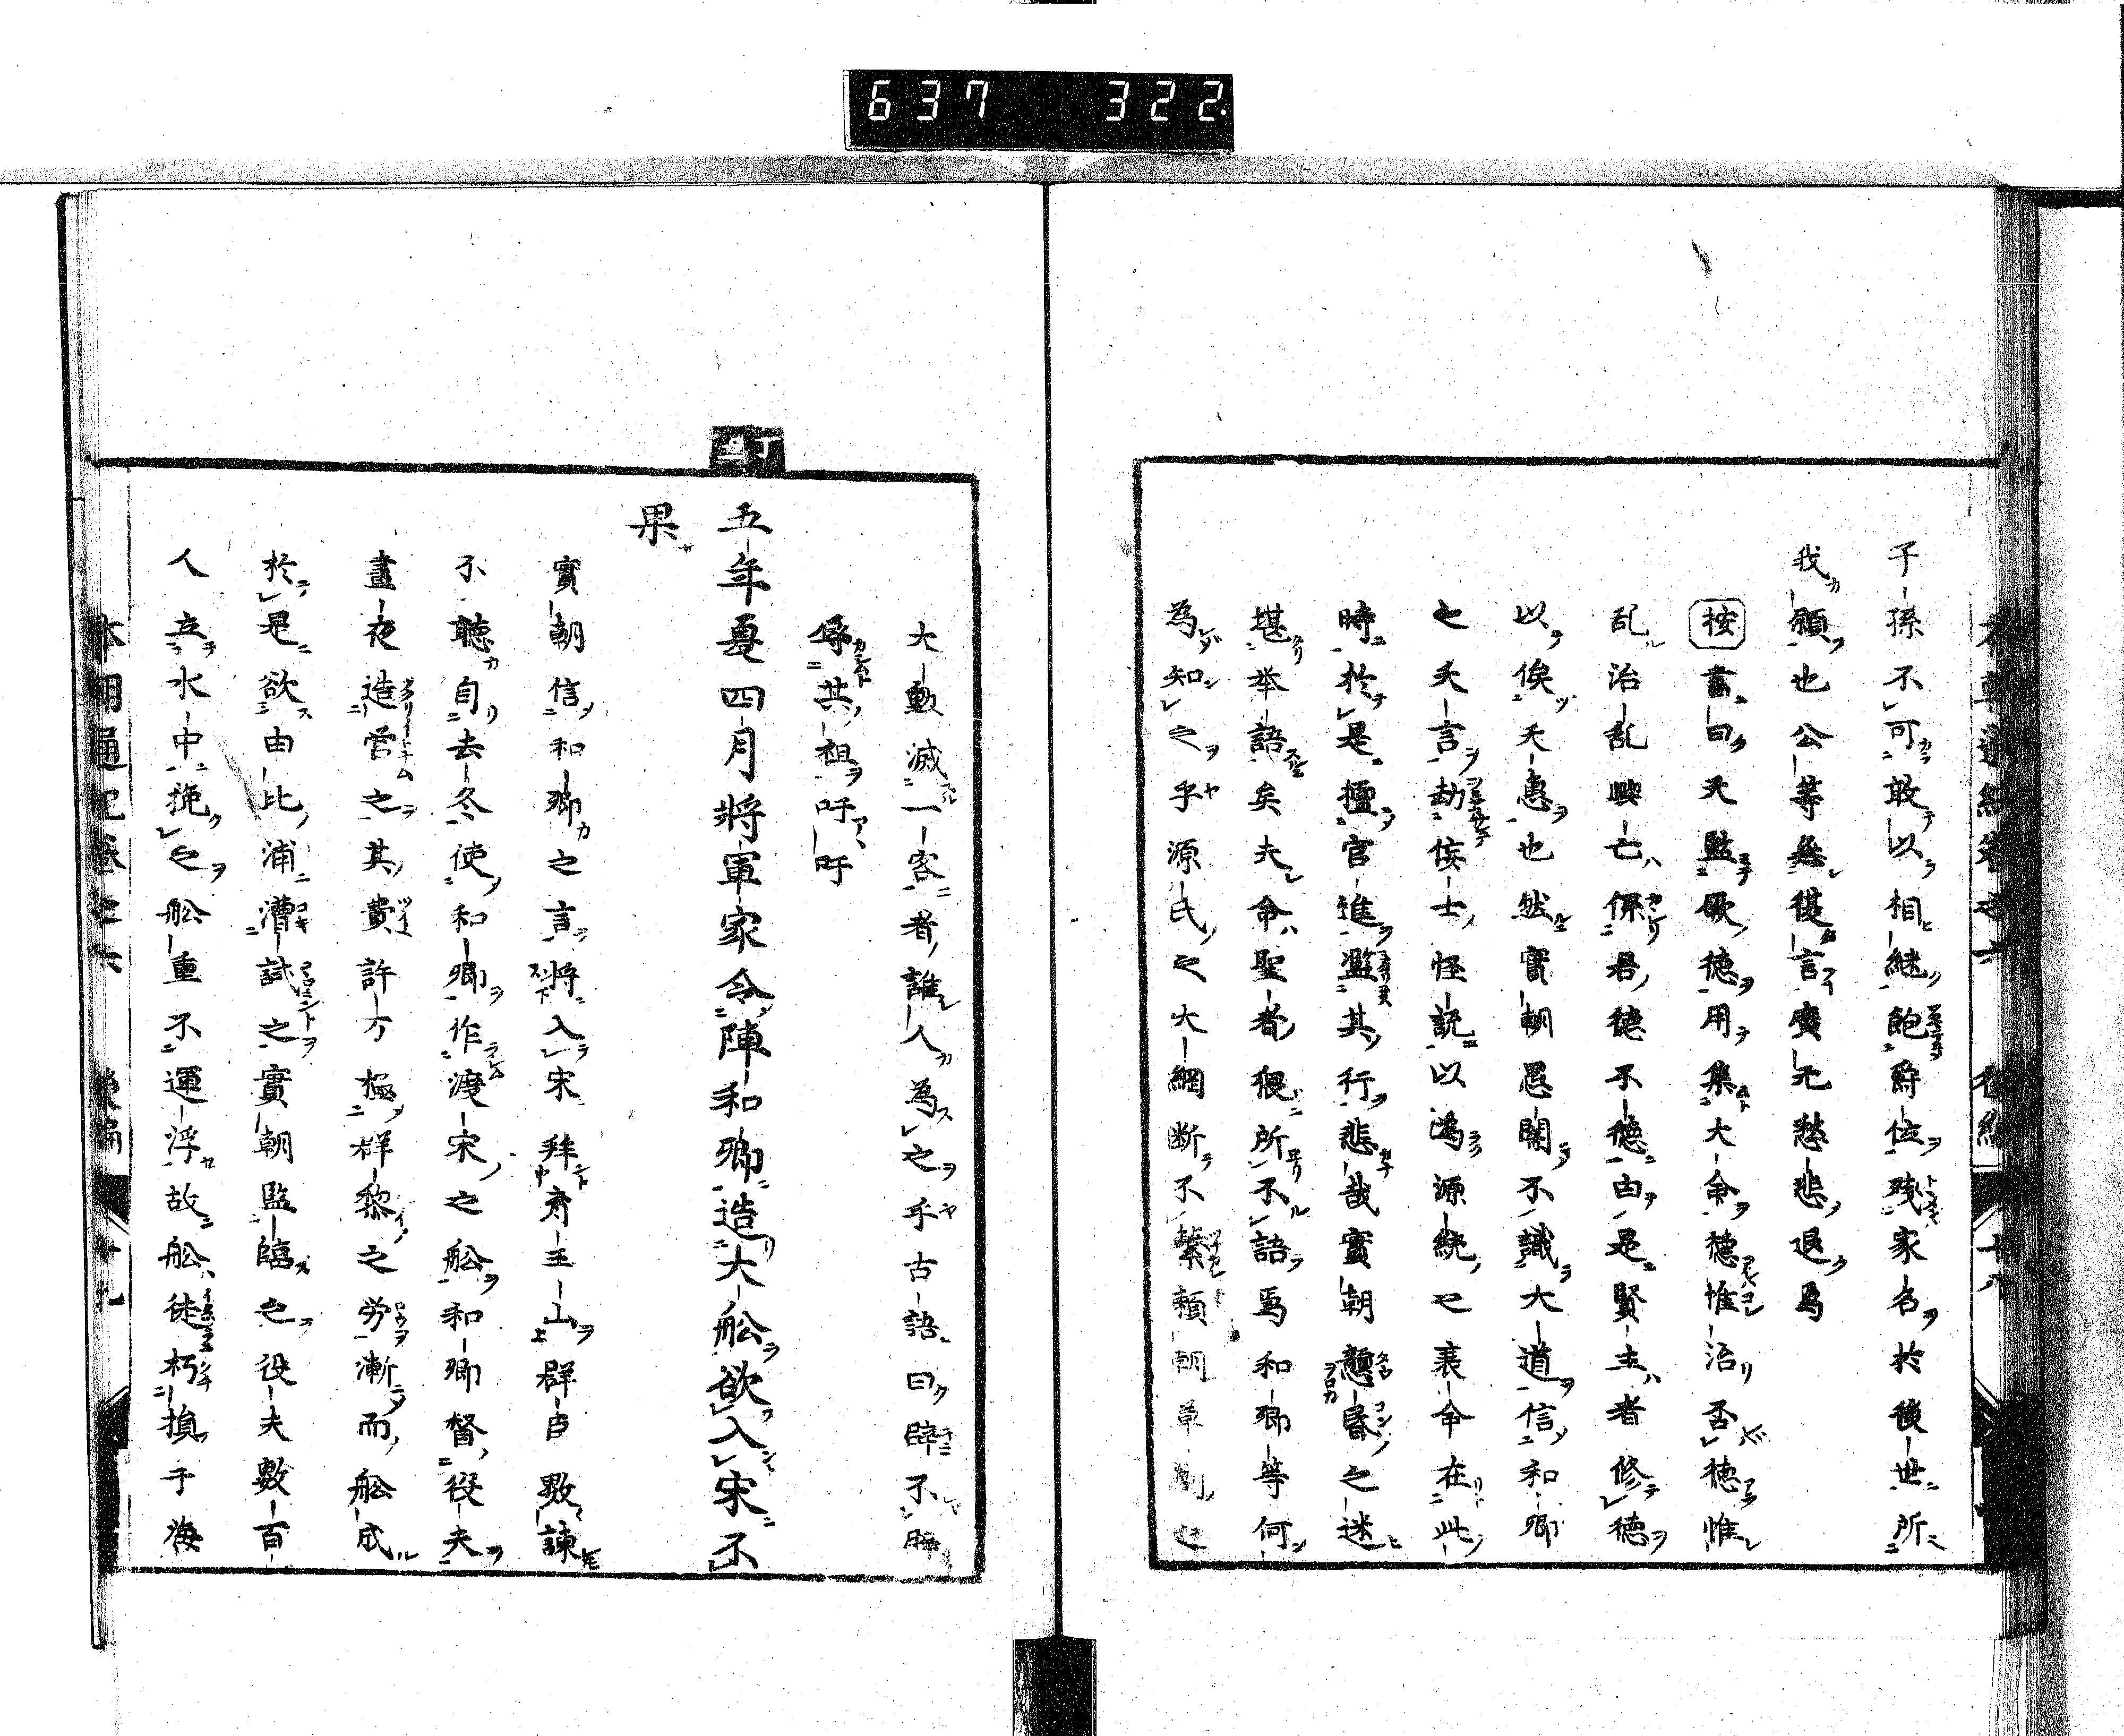 637 322
子孫不可敢以相継飽爵位残家名於後世所
我願也公等無復言廣元愁悲退焉
按書曰天監厥徳用集大命徳惟治否徳惟
乱治乱興亡係君徳不徳由是賢主者修徳
以俟天惠也然實朝愚闇不識大道信和卿
之夭言劫侫士怪説以為源統之衰命在此
時於是擅官進濫其行悲哉實朝戇昏之迷
堪举語矣夫命聖者猥所不語焉和卿等何
為知之乎源氏之大綱断不繋頼朝草創之
大勳滅一客者誰人為之乎古語曰辟不辟
忝其祖吁吁
丁丑
五年夏四月將軍家令陣和卿造大舩欲入宋不
果
實朝信和卿之言将入宋拜育王山群臣數諫
不聴自去冬使和卿作渡宋之舩和卿督役夫
晝夜造営之其費許方極群黎之労漸而舩成
於是欲由比浦漕試之實朝監臨之役夫數百
人立水中挽之舩重不運浮故舩徒朽損于海
本朝通紀巻之六 後編 十九